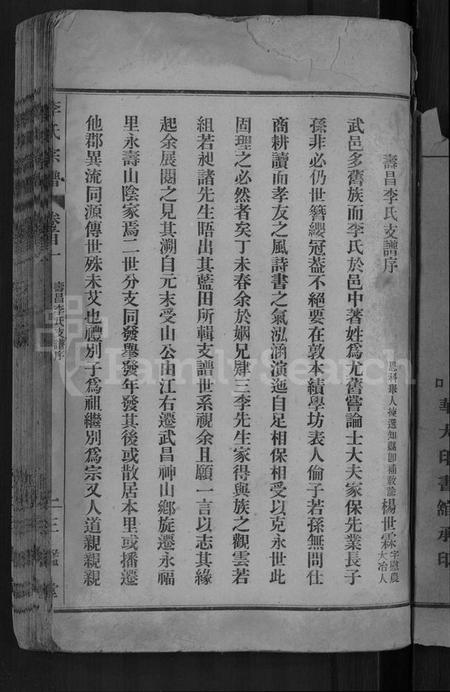 壽昌李氏支譜序
恩科舉人揀選知縣即補教諭楊世霖字慰農大冶人
武邑多舊族而李氏於邑中著姓為尤舊嘗論士大夫家保先業長子
孫非必仍世簪纓冠蓋不絕要在敦本績學坊表人倫子若孫無問仕
商耕讀而孝友之風詩書之氣泓涵演迤自足相保相受以克永世此
固理之必然者矣丁未春余於姻兄肆三李先生家得與族之觀雲若
組若昶諸先生晤出其藍田所輯支譜世系視余且願一言以志其緣
起余展閱之見其溯自元末受山公由江右遷武昌神山鄉旋遷永福
里永壽山陰家焉二世分支同發舉發年發其後或散居本里或播遷
他郡異流同源傳世殊未艾也禮別子為祖繼別為宗又人道親親親
李氏宗譜
卷首一
壽昌李氏支譜序
十三
華大印書館承印
FamilySearch